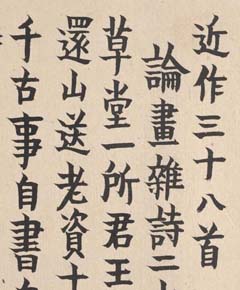 近作三十八首
論畫雜詩二
草堂一所君王
還山送老資十
千古事自書